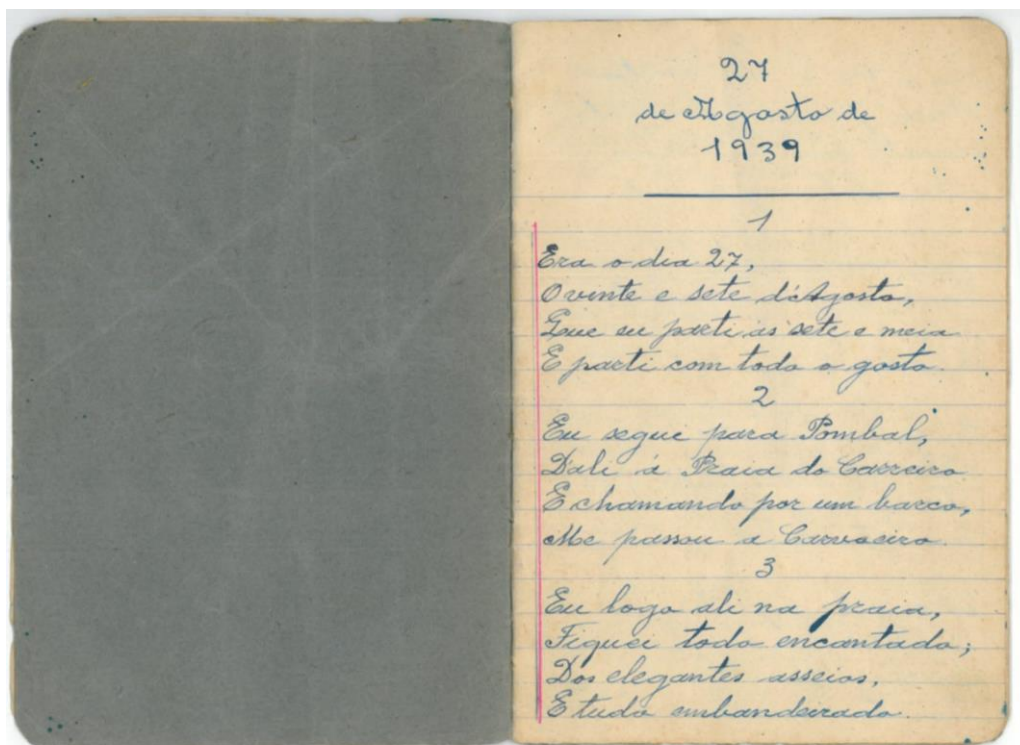 27
de Agosto de
1939
1
Era o dia 27,
O vinte e sete d'Agosto,
Que eu parti ás sete e meia
E parti com todo o gosto.
2
Eu segue para Pombal,
Dali á Praia do Carreiro
E chamando por um barco,
Me passou a Carvoeiro.
3
Eu logo ali na praia,
Fiquei todo encantado;
Dos elegantes asseios,
E tudo embandeirado.